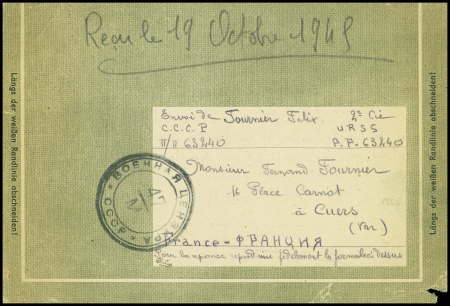 Reçu le 19 Octobre 1945
Längs der weißen Randlinie abschneiden!
Envoi de Fournier Felix 2e Cie
C.C.C.P URSS
П/Я 63240 A.P. 63240
Monsieur Fernand Fournier
16 Place Carnot
à Cuers
(Var)
France - ФРАНЦИЯ
Pour la réponse reproduire fidèlement la formule ci dessus
ВОЕННАЯ ЦЕНЗУРА
СССР
Längs der weißen Randlinie abschneiden!